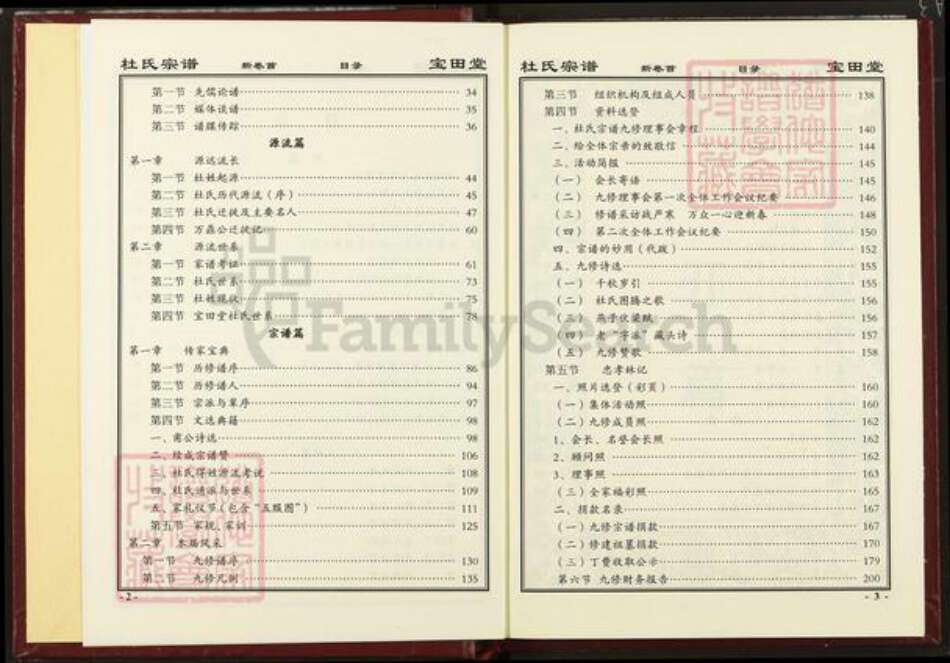 杜氏宗谱 新卷首 目录 宝田堂
第一节 先儒论谱 34
第二节 媒体谈谱 35
第三节 谱牒传踪 36
源流篇
第一章 源远流长
第一节 杜姓起源 44
第二节 杜氏历代源流(序) 45
第三节 杜氏迁徙及主要名人 47
第四节 万鼎公迁徙记 60
第二章 源流世系
第一节 家谱考证 61
第二节 杜氏世系 73
第三节 杜姓现状 75
第四节 宝田堂杜氏世系 78
宗谱篇
第一章 传家宝典
第一节 历修谱序 86
第二节 历修谱人 94
第三节 宗派与辈序 97
第四节 文选典籍 98
一、甫公诗选 98
二、续成宗谱赞 106
三、杜氏得姓源流考说 108
四、杜氏通派与世系 109
五、家礼仪节(包含“五服图”) 111
第五节 家规、家训 125
第二章 本届风采
第一节 九修谱序 130
第二节 九修凡例 135
- 2 -
杜氏宗谱 新卷首 目录 宝田堂
第三节 组织机构及组成人员 138
第四节 资料选登
一、杜氏宗谱九修理事会章程 140
二、给全体宗亲的致敬信 144
三、活动简报 145
(一) 会长寄语 145
(二) 九修理事会第一次全体工作会议纪要 146
(三) 修谱采访战严寒 万众一心迎新春 148
(四) 第二次全体工作会议纪要 150
四、宗谱的妙用(代跋) 152
五、九修诗选 155
(一) 千秋岁引 155
(二) 杜氏图腾之歌 156
(三) 燕子伏梁赋 156
(四) 老“字派”藏头诗 157
(五) 九修赞歌 158
第五节 忠孝林记
一、照片选登(彩页) 160
(一)集体活动照 160
(二)九修成员照 162
1、会长、名誉会长照 162
2、顾问照 162
3、理事照 163
(三)全家福彩照 165
二、捐款名录 167
(一)九修宗谱捐款 167
(二)修建祖墓捐款 170
(三)丁费收取公示 179
第六节 九修财务报告 200
- 3 -
FamilySearch